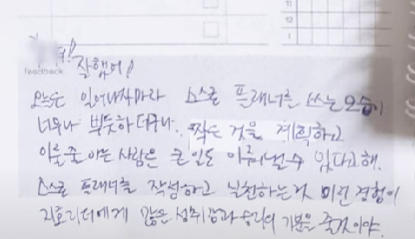 잘했어!
feedback
오늘은 일어나자마자 스스로 플래너를 쓰는 모습이
너무나 뿌듯하더구나. 작은 것을 계획하고
이룰 줄 아는 사람은 큰 일도 이뤄낼 수 있다고 해.
스스로 플래너를 작성하고 실천하는 것 이런 경험이
리더에게 많은 성취감과 승리의 기분을 줄것이야.
11
12
1